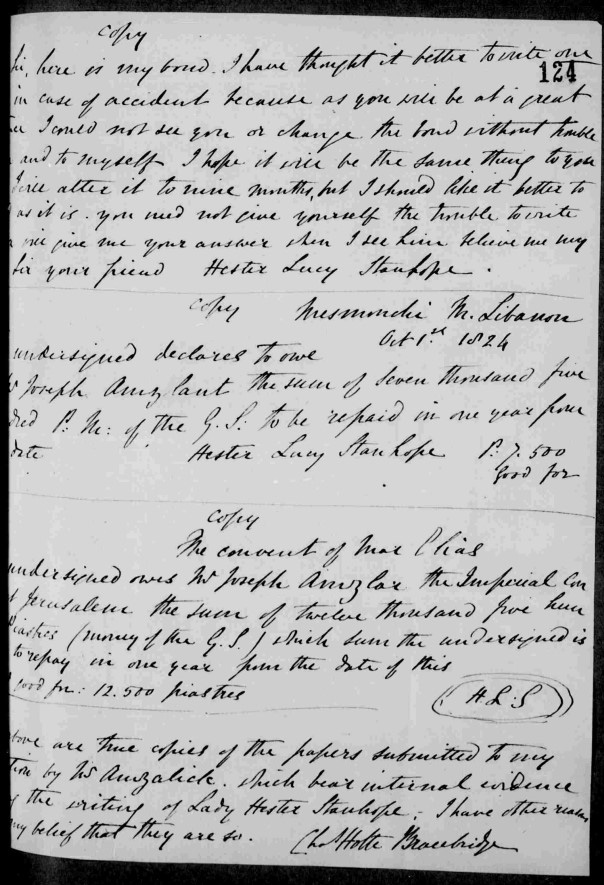 copy
Sir, here is my bond. I have thought it better to write one
124
in case of accident because as you will be at a great
I could not see you or change the bond without trouble
and to myself I hope it will be the same thing to you
will alter it to nine months, but I should like it better to
as it is. you need not give yourself the trouble to write
give me your answer when I see him believe me my
Sir your friend Hester Lucy Stanhope.
copy M. Libanon
Oct 1st 1824
undersigned declares to owe
Mr Joseph the sum of seven thousand five
dred P: M: of the G. S: to be repaid in one year from
date Hester Lucy Stanhope P. 7.500
Good for
copy
The convent of Mar Elias
undersigned owes Mr Joseph Amzlac the Imperial Con
t Jerusalem the sum of twelve thousand five hun
Piastres (money of the G. S.) which sum the undersigned is
to repay in one year from the date of this
good for: 12.500 piastres
(H. L. S)
bove are true copies of the papers submitted to my
tion by Mr Amzalick. which bear internal evidence
the writing of Lady Hester Stanhope; I have other reasons
my belief that they are so. Chas Holte Bracebridge